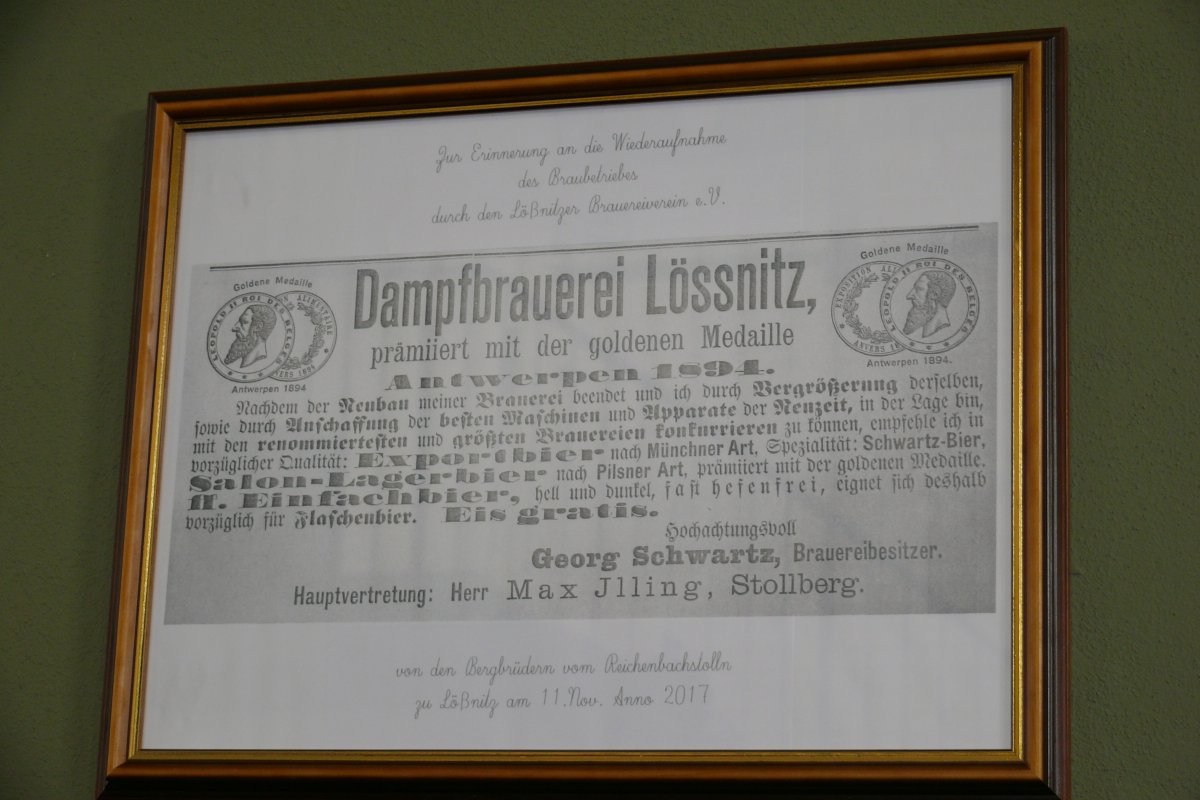 Zur Erinnerung an die Wiederaufnahme
des Braubetriebes
durch den Lößnitzer Brauereiverein e.V.
Goldene Medaille
LEOPOLD II ROI DES BELGES
ALIMENTAIRE
ANVERS 1894
Antwerpen 1894
Goldene Medaille
EXPOSITION
LEOPOLD II ROI DES BELGES
ANVERS
Antwerpen 1894.
Dampfbrauerei Lössnitz,
prämiiert mit der goldenen Medaille
Antwerpen 1894.
Nachdem der Neubau meiner Brauerei beendet und ich durch Vergrößerung derselben,
sowie durch Anschaffung der besten Maschinen und Apparate der Neuzeit, in der Lage bin,
mit den renommiertesten und größten Brauereien konkurrieren zu können, empfehle ich in
vorzüglicher Qualität: Exportbier nach Münchner Art, Spezialität: Schwartz-Bier,
Salon-Lagerbier nach Pilsner Art, prämiiert mit der goldenen Medaille.
ff. Einfachbier, hell und dunkel, fast hefenfrei, eignet sich deshalb
vorzüglich für Flaschenbier. Eis gratis.
Hochachtungsvoll
Georg Schwartz, Brauereibesitzer.
Hauptvertretung: Herr Max Jlling, Stollberg.
von den Bergbrüdern vom Reichenbachstolln
zu Lößnitz am 11.Nov. Anno 2017